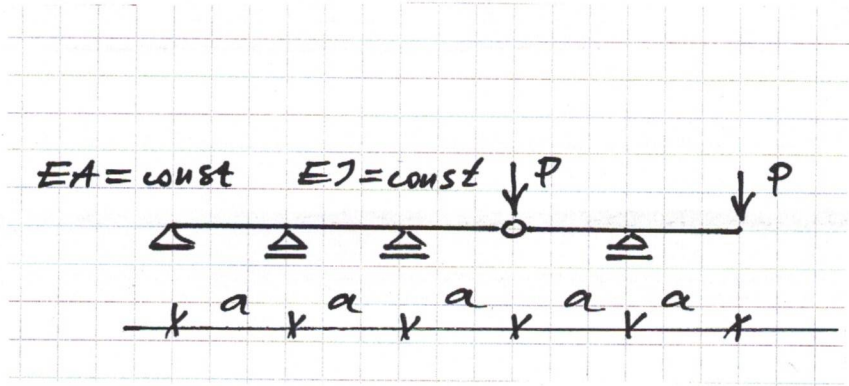 EA = const EJ = const P P
a a a a a